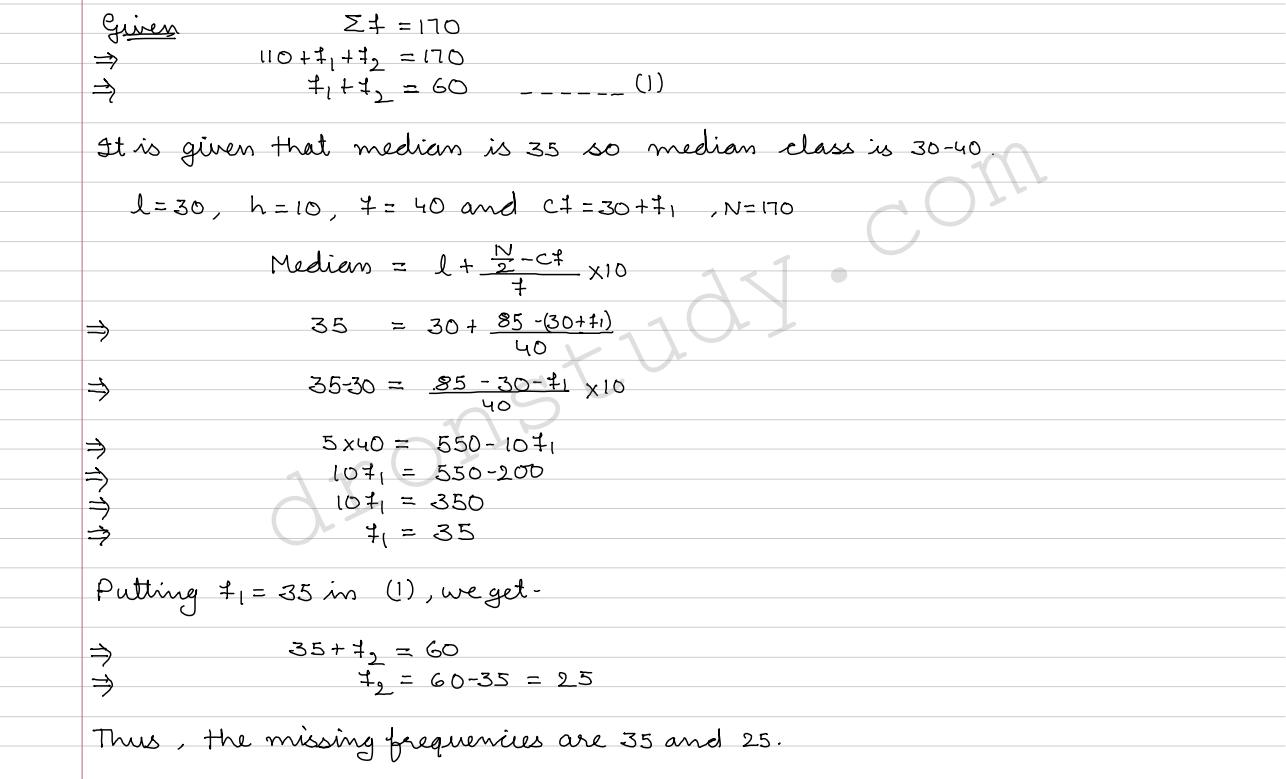 Given Σf = 170
⇒ 110 + f₁ + f₂ = 170
⇒ f₁ + f₂ = 60 ------ (1)
It is given that median is 35 so median class is 30-40.
l = 30, h = 10, f = 40 and cf = 30 + f₁ , N = 170
Median = l + (N/2 - cf)/f × 10
⇒ 35 = 30 + (85 - (30 + f₁))/40
⇒ 35-30 = (85 - 30 - f₁)/40 × 10
⇒ 5 × 40 = 550 - 10f₁
⇒ 10f₁ = 550 - 200
⇒ 10f₁ = 350
⇒ f₁ = 35
Putting f₁ = 35 in (1), we get-
⇒ 35 + f₂ = 60
⇒ f₂ = 60 - 35 = 25
Thus, the missing frequencies are 35 and 25.
dronstudy.com